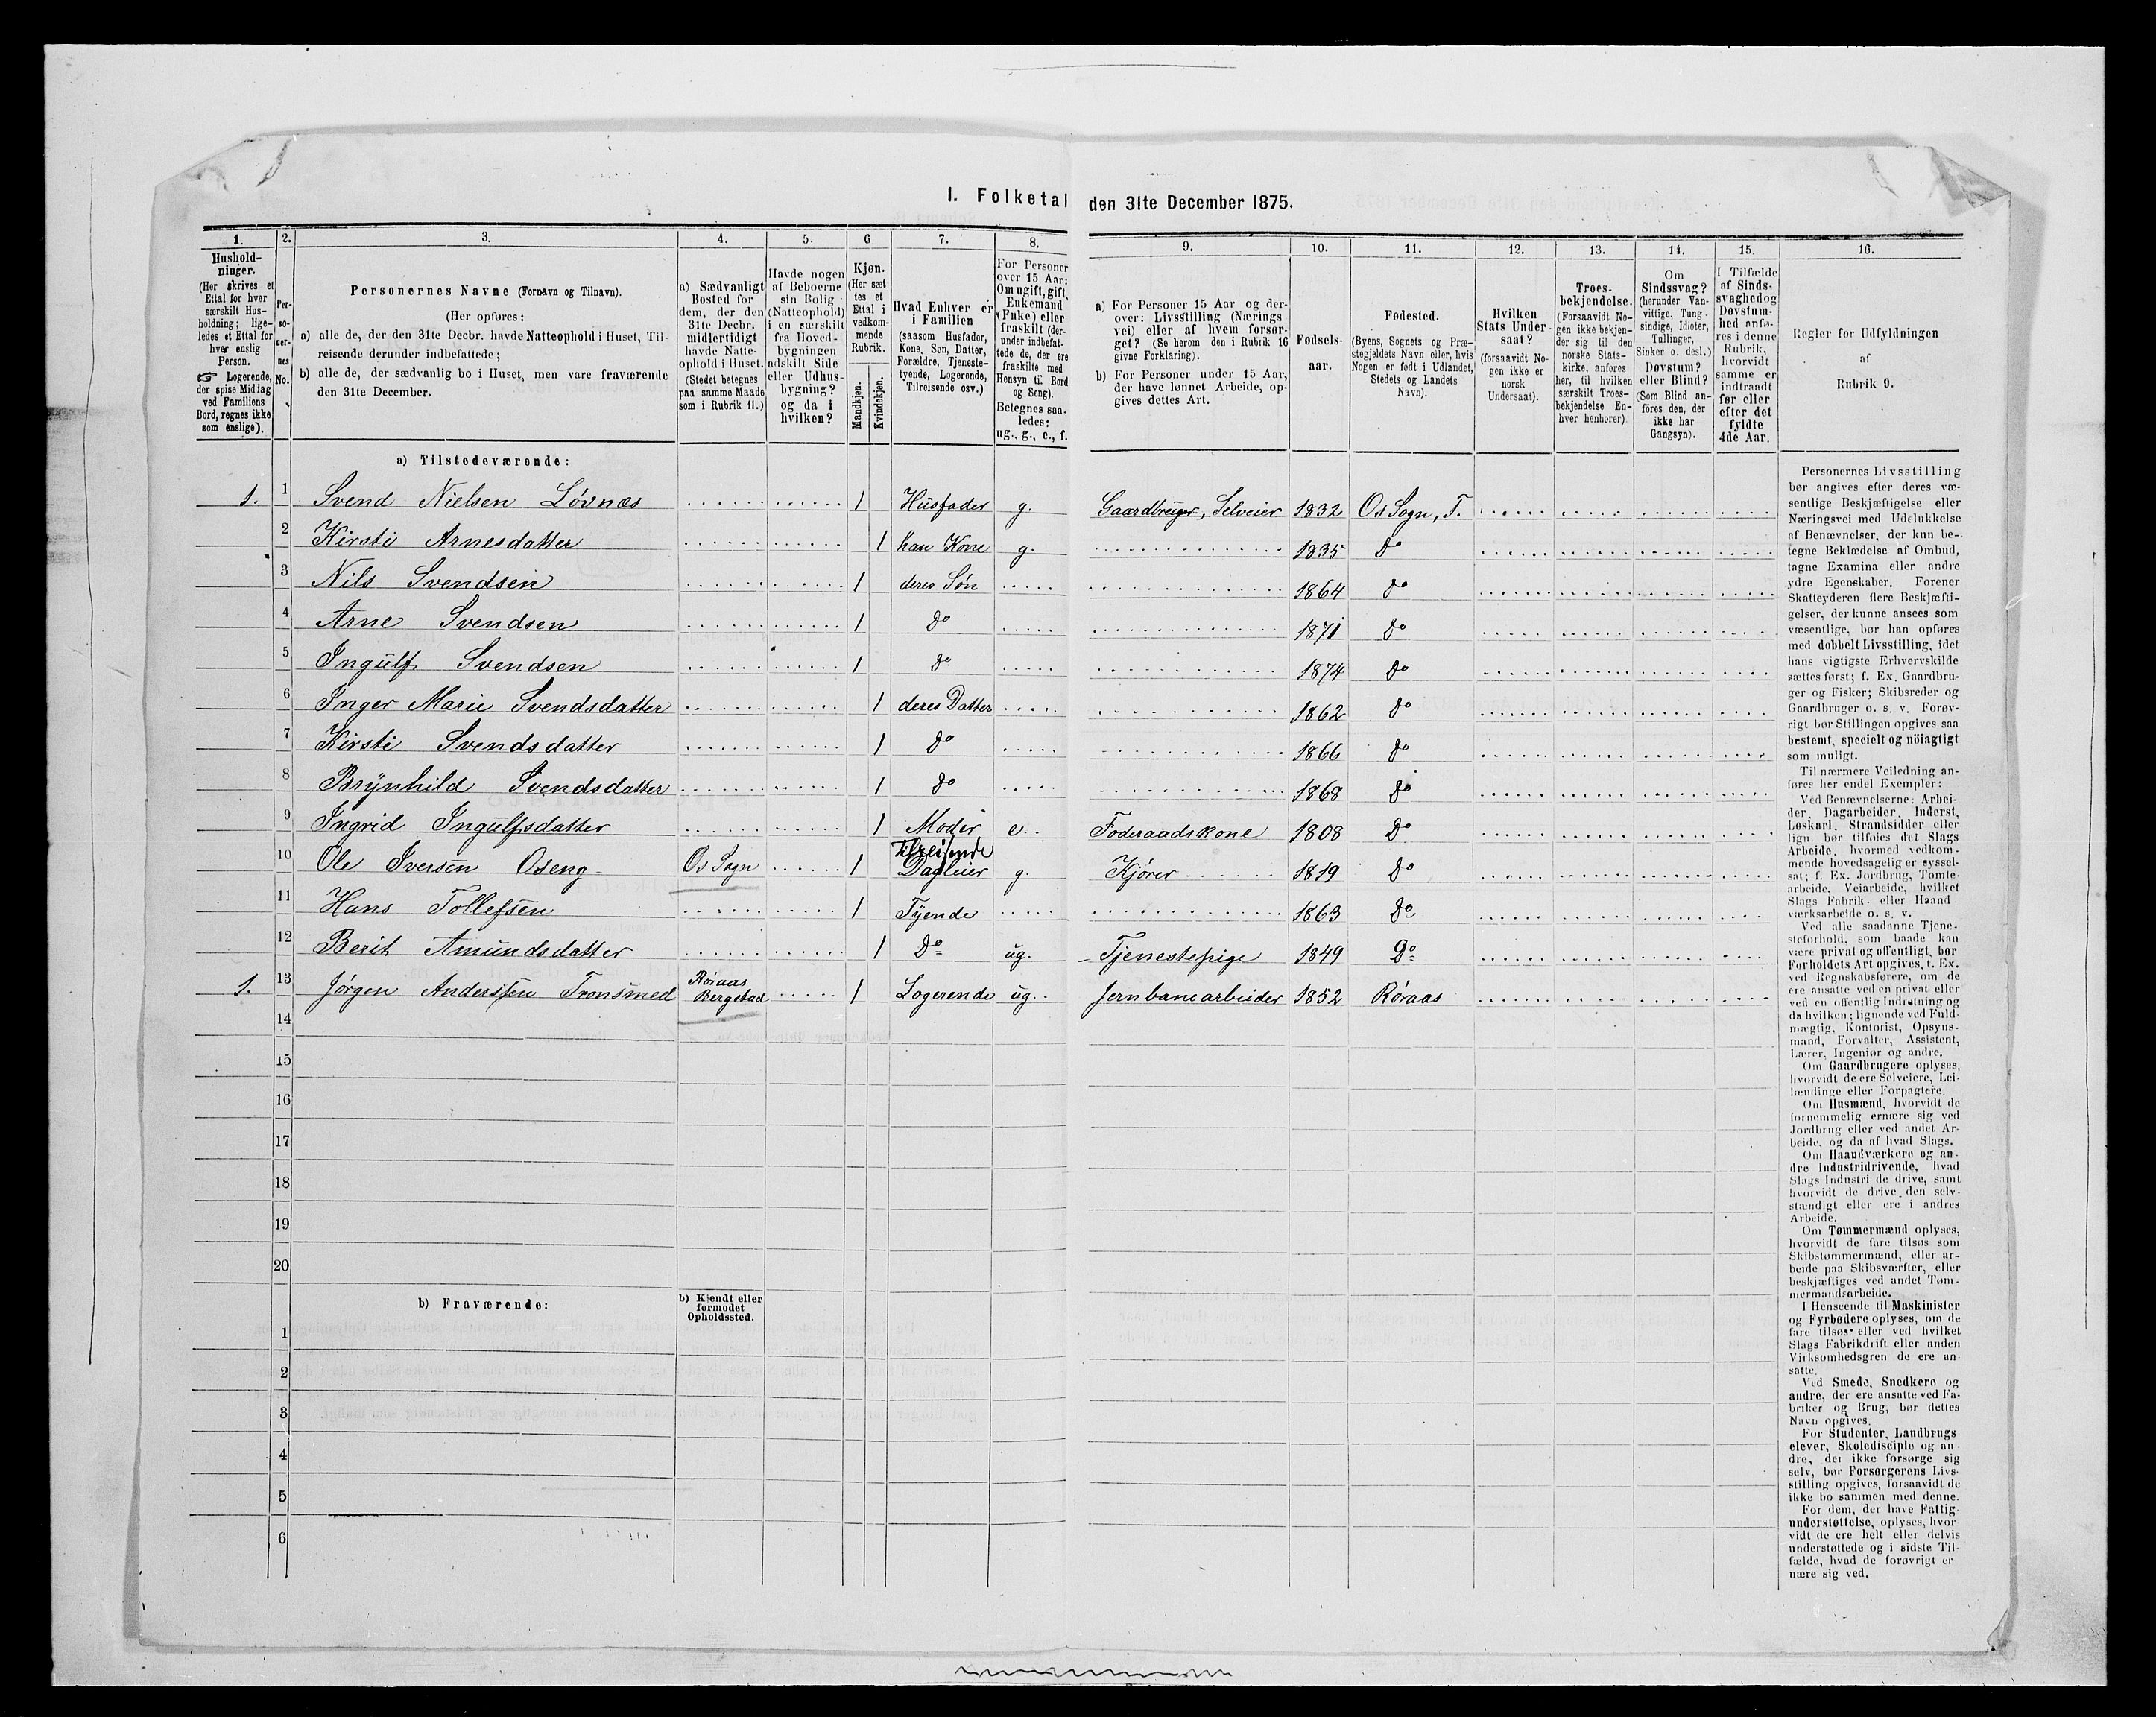 I. Folketal den 31te December 1875.
1.
Husholdninger.
(Her skrives et Ettal for hver særskilt Husholdning; ligeledes et Ettal for hver enslig Person.
☞ Logerende, der spise Middag ved Familiens Bord, regnes ikke som enslige).
2.
Personernes No.
3.
Personernes Navne (Fornavn og Tilnavn).
(Her opføres:
a) alle de, der den 31te Decbr. havde Natteophold i Huset, Tilreisende derunder indbefattede;
b) alle de, der sædvanlig bo i Huset, men vare fraværende den 31te December.
4.
a) Sædvanligt Bosted for dem, der den 31te Decbr. midlertidigt havde Natteophold i Huset.
(Stedet betegnes paa samme Maade som i Rubrik 11.)
5.
Havde nogen af Beboerne sin Bolig (Natteophold) i en særskilt fra Hovedbygningen adskilt Side eller Udhusbygning? og da i hvilken?
6.
Kjøn.
(Her sættes et Ettal i vedkommende Rubrik.
Mandkjøn.
Kvindekjøn.
7.
Hvad Enhver er i Familien
(saasom Husfader, Kone, Søn, Datter, Forældre, Tjenestetyende, Logerende, Tilreisende osv.)
8.
For Personer over 15 Aar: Om ugift, gift, Enkemand (Enke) eller fraskilt (derunder indbefattede de, der ere fraskilte med Hensyn til Bord og Seng).
Betegnes saaledes: ug., g., e., f.
9.
a) For Personer 15 Aar og derover: Livsstilling (Næringsvei) eller af hvem forsørget? (Se herom den i Rubrik 16 givne Forklaring).
b) For Personer under 15 Aar, der have lønnet Arbeide, opgives dettes Art.
10.
Fødselsaar.
11.
Fødested.
(Byens, Sognets og Præstegjeldets Navn eller, hvis Nogen er født i Udlandet, Stedets og Landets Navn).
12.
Hvilken Stats Undersaat?
(forsaavidt Nogen ikke er norsk Undersaat).
13.
Troesbekjendelse.
(Forsaavidt Nogen ikke bekjender sig til den norske Statskirke, anføres her, til hvilken særskilt Troesbekjendelse Enhver henhører).
14.
Om Sindssvag? (herunder Vanvittige, Tungsindige, Idioter, Tullinger, Sinker o. desl.) Døvstum? eller Blind? (Som Blind anføres den, der ikke har Gangsyn).
15.
I Tilfælde af Sindssvaghed og Døvstumhed anføres i denne Rubrik, hvorvidt samme er indtraadt før eller efter det fyldte 4de Aar.
16.
Regler for Udfyldningen af Rubrik 9.
a) Tilstedeværende:
1. 1 Svend Nielsen Lövnæs 1 Husfader g. Gaardbruger, Selveier 1832 Os Sogn, T.
2 Kirsti Arnesdatter 1 han Kone g. 1835 Do
3 Nils Svendsen 1 deres Sön 1864 Do
4 Arne Svendsen 1 Do 1871 Do
5 Ingulf Svendsen 1 Do 1874 Do
6 Inger Marie Svendsdatter 1 deres Datter 1862 Do
7 Kirsti Svendsdatter 1 Do 1866 Do
8 Brynhild Svendsdatter 1 Do 1868 Do
9 Ingrid Ingulfsdatter 1 Moder e. Föderaadskone 1808 Do
10 Ole Iversen Oseng Os Sogn 1 Tilreisende g. Kjörer 1819 Do
11 Hans Tollefsen 1 Tyende 1863 Do
12 Berit Amundsdatter 1 Do ug. Tjenestepige 1849 Do
1. 13 Jörgen Anderssen Tronsmed Röraas Bergstad 1 Logerende ug. Jernbanearbeider 1852 Röraas
14
15
16
17
18
19
20
b) Fraværende:
b) Kjendt eller formodet Opholdssted.
1
2
3
4
5
6
Personernes Livsstilling
bør angives efter deres væ-
sentlige Beskjæftigelse eller
Næringsvei med Udelukkelse
af Benævnelser, der kun be-
tegne Beklædelse af Ombud,
tagne Examina eller andre
ydre Egenskaber. Forener
Skatteyderen flere Beskjæfti-
gelser, der kunne ansees som
væsentlige, bør han opføres
med dobbelt Livsstilling, idet
hans vigtigste Erhvervskilde
sættes først; f. Ex. Gaardbru-
ger og Fisker; Skibsreder og
Gaardbruger o. s. v. Forøv-
rigt bør Stillingen opgives saa
bestemt, specielt og nöiagtigt
som muligt.
Til nærmere Veiledning an-
føres her endel Exempler:
Ved Benævnelserne: Arbei-
der, Dagarbeider, Inderst,
Løskarl, Strandsidder eller
lign. bør tilføies det Slags
Arbeide, hvormed vedkom-
mende hovedsagelig er syssel-
sat; f. Ex. Jordbrug, Tomte-
arbeide, Veiarbeide, hvilket
Slags Fabrik- eller Haand-
værksarbeide o. s. v.
Ved alle saadanne Tjene-
steforhold, som baade kan
være privat og offentligt, bør
Forholdets Art opgives, f. Ex.
ved Regnskabsførere, om de
ere ansatte ved en privat eller
ved en offentlig Indretning og
da hvilken; lignende ved Fuld-
mægtig, Kontorist, Opsyns-
mand, Forvalter, Assistent,
Lærer, Ingeniør og andre.
Om Gaardbrugere oplyses,
hvorvidt de ere Selveiere, Lei-
lændinge eller Forpagtere.
Om Husmænd, hvorvidt de
fornemmelig ernære sig ved
Jordbrug eller ved andet Ar-
beide, og da af hvad Slags.
Om Haandværkere og an-
dre Industridrivende, hvad
Slags Industri de drive, samt
hvorvidt de drive den selv-
stændigt eller ere i andres
Arbeide.
Om Tømmermænd oplyses,
hvorvidt de fare tilsøs som
Skibstømmermænd, eller ar-
beide paa Skibsværfter, eller
beskjæftiges ved andet Tøm-
mermandsarbeide.
I Henseende til Maskinister
og Fyrbødere oplyses, om de
fare tilsøs eller ved hvilket
Slags Fabrikdrift eller anden
Virksomhedsgren de ere an-
satte.
Ved Smede, Snedkere og
andre, der ere ansatte ved Fa-
briker og Brug, bør dettes
Navn opgives.
For Studenter, Landbrugs-
elever, Skoledisciple og an-
dre, der ikke forsørge sig
selv, bør Forsørgerens Livs-
stilling opgives, forsaavidt de
ikke bo sammen med denne.
For dem, der have Fattig-
understøttelse, oplyses, hvor-
vidt de ere helt eller delvis
understøttede og i sidste Til-
fælde, hvad de forøvrigt er-
nære sig ved.